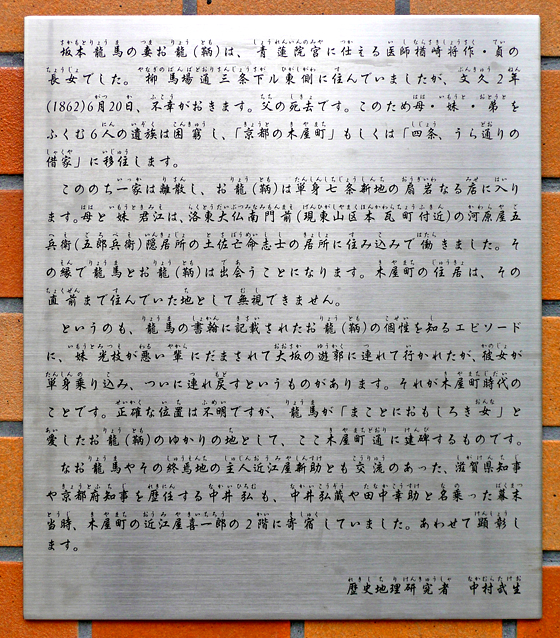 坂本龍馬の妻お龍(鞆)は、青蓮院宮に仕える医師楢崎将作・貞の
長女でした。柳馬場通三条下ル東側に住んでいましたが、文久2年
(1862)6月20日、不幸がおきます。父の死去です。このため母・妹・弟を
ふくむ6人の遺族は困窮し、「京都の木屋町」もしくは「四条、うら通りの
借家」に移住します。
このち一家は離散し、お龍(鞆)は単身七条新地の扇岩なる店に入り
ます。母と妹君江は、洛東大仏南門前(現東山区本瓦町付近)の河原屋五
兵衛(五郎兵衛)隠居所の土佐亡命志士の居所に住み込みで働きました。そ
の縁で龍馬とお龍(鞆)は出会うことになります。木屋町の住居は、その
直前まで住んでいた地として無視できません。
というのも、龍馬の書翰に記載されたお龍(鞆)の個性を知るエピソード
に、妹光枝が悪い輩にだまされて大坂の遊郭に連れて行かれたが、彼女が
単身乗り込み、ついに連れ戻すというものがあります。それが木屋町時代の
ことです。正確な位置は不明ですが、龍馬が「まことにおもしろき女」と
愛したお龍(鞆)のゆかりの地として、ここ木屋町通に建碑するものです。
なお龍馬やその終焉地の主人近江屋新助とも交流のあった、滋賀県知事
や京都府知事を歴任する中井弘も、中井弘蔵や田中幸助と名乗った幕末
当時、木屋町の近江屋喜一郎の2階に寄宿していました。あわせて顕彰し
ます。
歴史地理研究者 中村武生